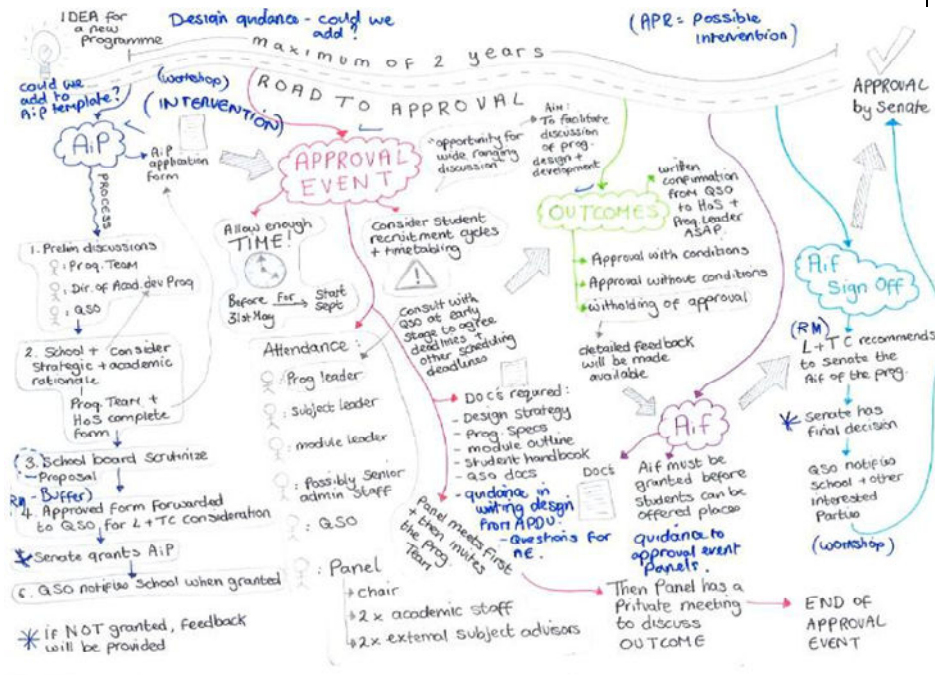 IDEA for
a new
Programme
Design guidance - could we
add?
(APR = Possible
intervention)
maximum of 2 years
ROAD TO APPROVAL
APPROVAL
by Senate
could we
add to
AiP template?
(workshop)
(INTERVENTION)
AiP
AiP
application
form
PROCESS
1. Prelim discussions
: Prog. Team
: Dir. of Acad. dev Prog
: QSO
2. School + Consider
Strategic + academic
rationale
Prog. Team +
HoS complete
form
3. School board Scrutinize
- Proposal
RM - Buffer)
4. Approved form Forwarded
to QSO, for L + TC consideration
* Senate grants AiP
6. QSO notifies School when granted
* if NOT granted, feedback
will be provided
APPROVAL
EVENT
opportunity for
wide ranging
discussion
Aim:
To facilitate
discussion
of prog.
design +
development
Allow enough
TIME!
Before
31st May
For
Start
Sept
Consider Student
recruitment cycles
+ timetabling
Consult with
QSO at early
stage to agree
deadlines +
other scheduling
deadlines
Attendance:
: Prog leader
: subject leader
: module leader
: Possibly Senior
admin staff
: QSO
: Panel
chair
2x academic staff
2x external subject advisors
DOCS required:
- Design Strategy
- Prog. Specs
- module outline
- Student handbook
- QSO docs
- guidance in
writing design
from APDU.
- Questions for
AE.
Panel meets first
+ then invites
the prog.
Team
Then Panel has a
Private meeting
to discuss
OUTCOME
END OF
APPROVAL
EVENT
OUTCOMES
written
confirmation
from QSO
to HoS +
Prog. Leader
ASAP.
Approval with conditions
Approval without conditions
witholding of approval
detailed feedback
will be made
available
Aif
Docs
Aif must be
granted before
students can be
offered places
guidance to
approval event
Panels.
Aif
Sign Off
(RM)
L + TC recommends
to Senate the
Aif of the prog.
* Senate has
final decision
QSO notifies
school + other
interested
Parties
(workshop)